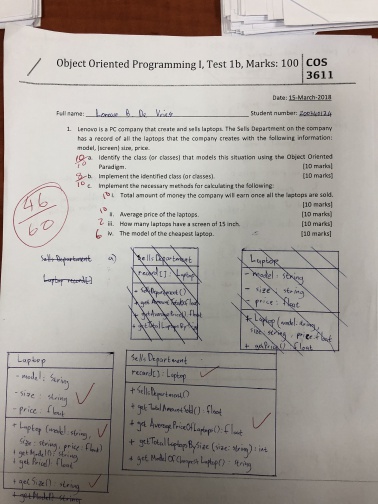 Object Oriented Programming I, Test 1b, Marks: 100
COS 3611
Date: 15-March-2018
Full name: B. De Vries Student number:
1. Lenovo is a PC company that create and sells laptops. The Sells Department on the company
has a record of all the laptops that the company creates with the following information:
model, (screen) size, price.
10/10 a. Identify the class (or classes) that models this situation using the Object Oriented
Paradigm. [10 marks]
8/10 b. Implement the identified class (or classes). [10 marks]
c. Implement the necessary methods for calculating the following:
10 i. Total amount of money the company will earn once all the laptops are sold.
[10 marks]
10 ii. Average price of the laptops. [10 marks]
2 iii. How many laptops have a screen of 15 inch. [10 marks]
6 iv. The model of the cheapest laptop. [10 marks]
46/60
Sells Department
Laptop record[]
a)
Sells Department
record[] : Laptop
+ SellsDepartment()
Laptop
- model : string
- size : string
- price : float
+ Laptop (model: string,
size: string, price: float)
+ getPrice() : float
Laptop
- model : String
- size : string
- price : float
+ Laptop (model: string,
size: string, price: float)
+ getModel() : string
+ getPrice() : float
+ getSize() : string
+ getModel() : string
Sells Department
record[] : Laptop
+ SellsDepartment()
+ getTotalAmountSold() : float
+ getAveragePriceOfLaptops() : float
+ getTotalLaptopsBySize (size: string) : int
+ getModelOfCheapestLaptop() : string